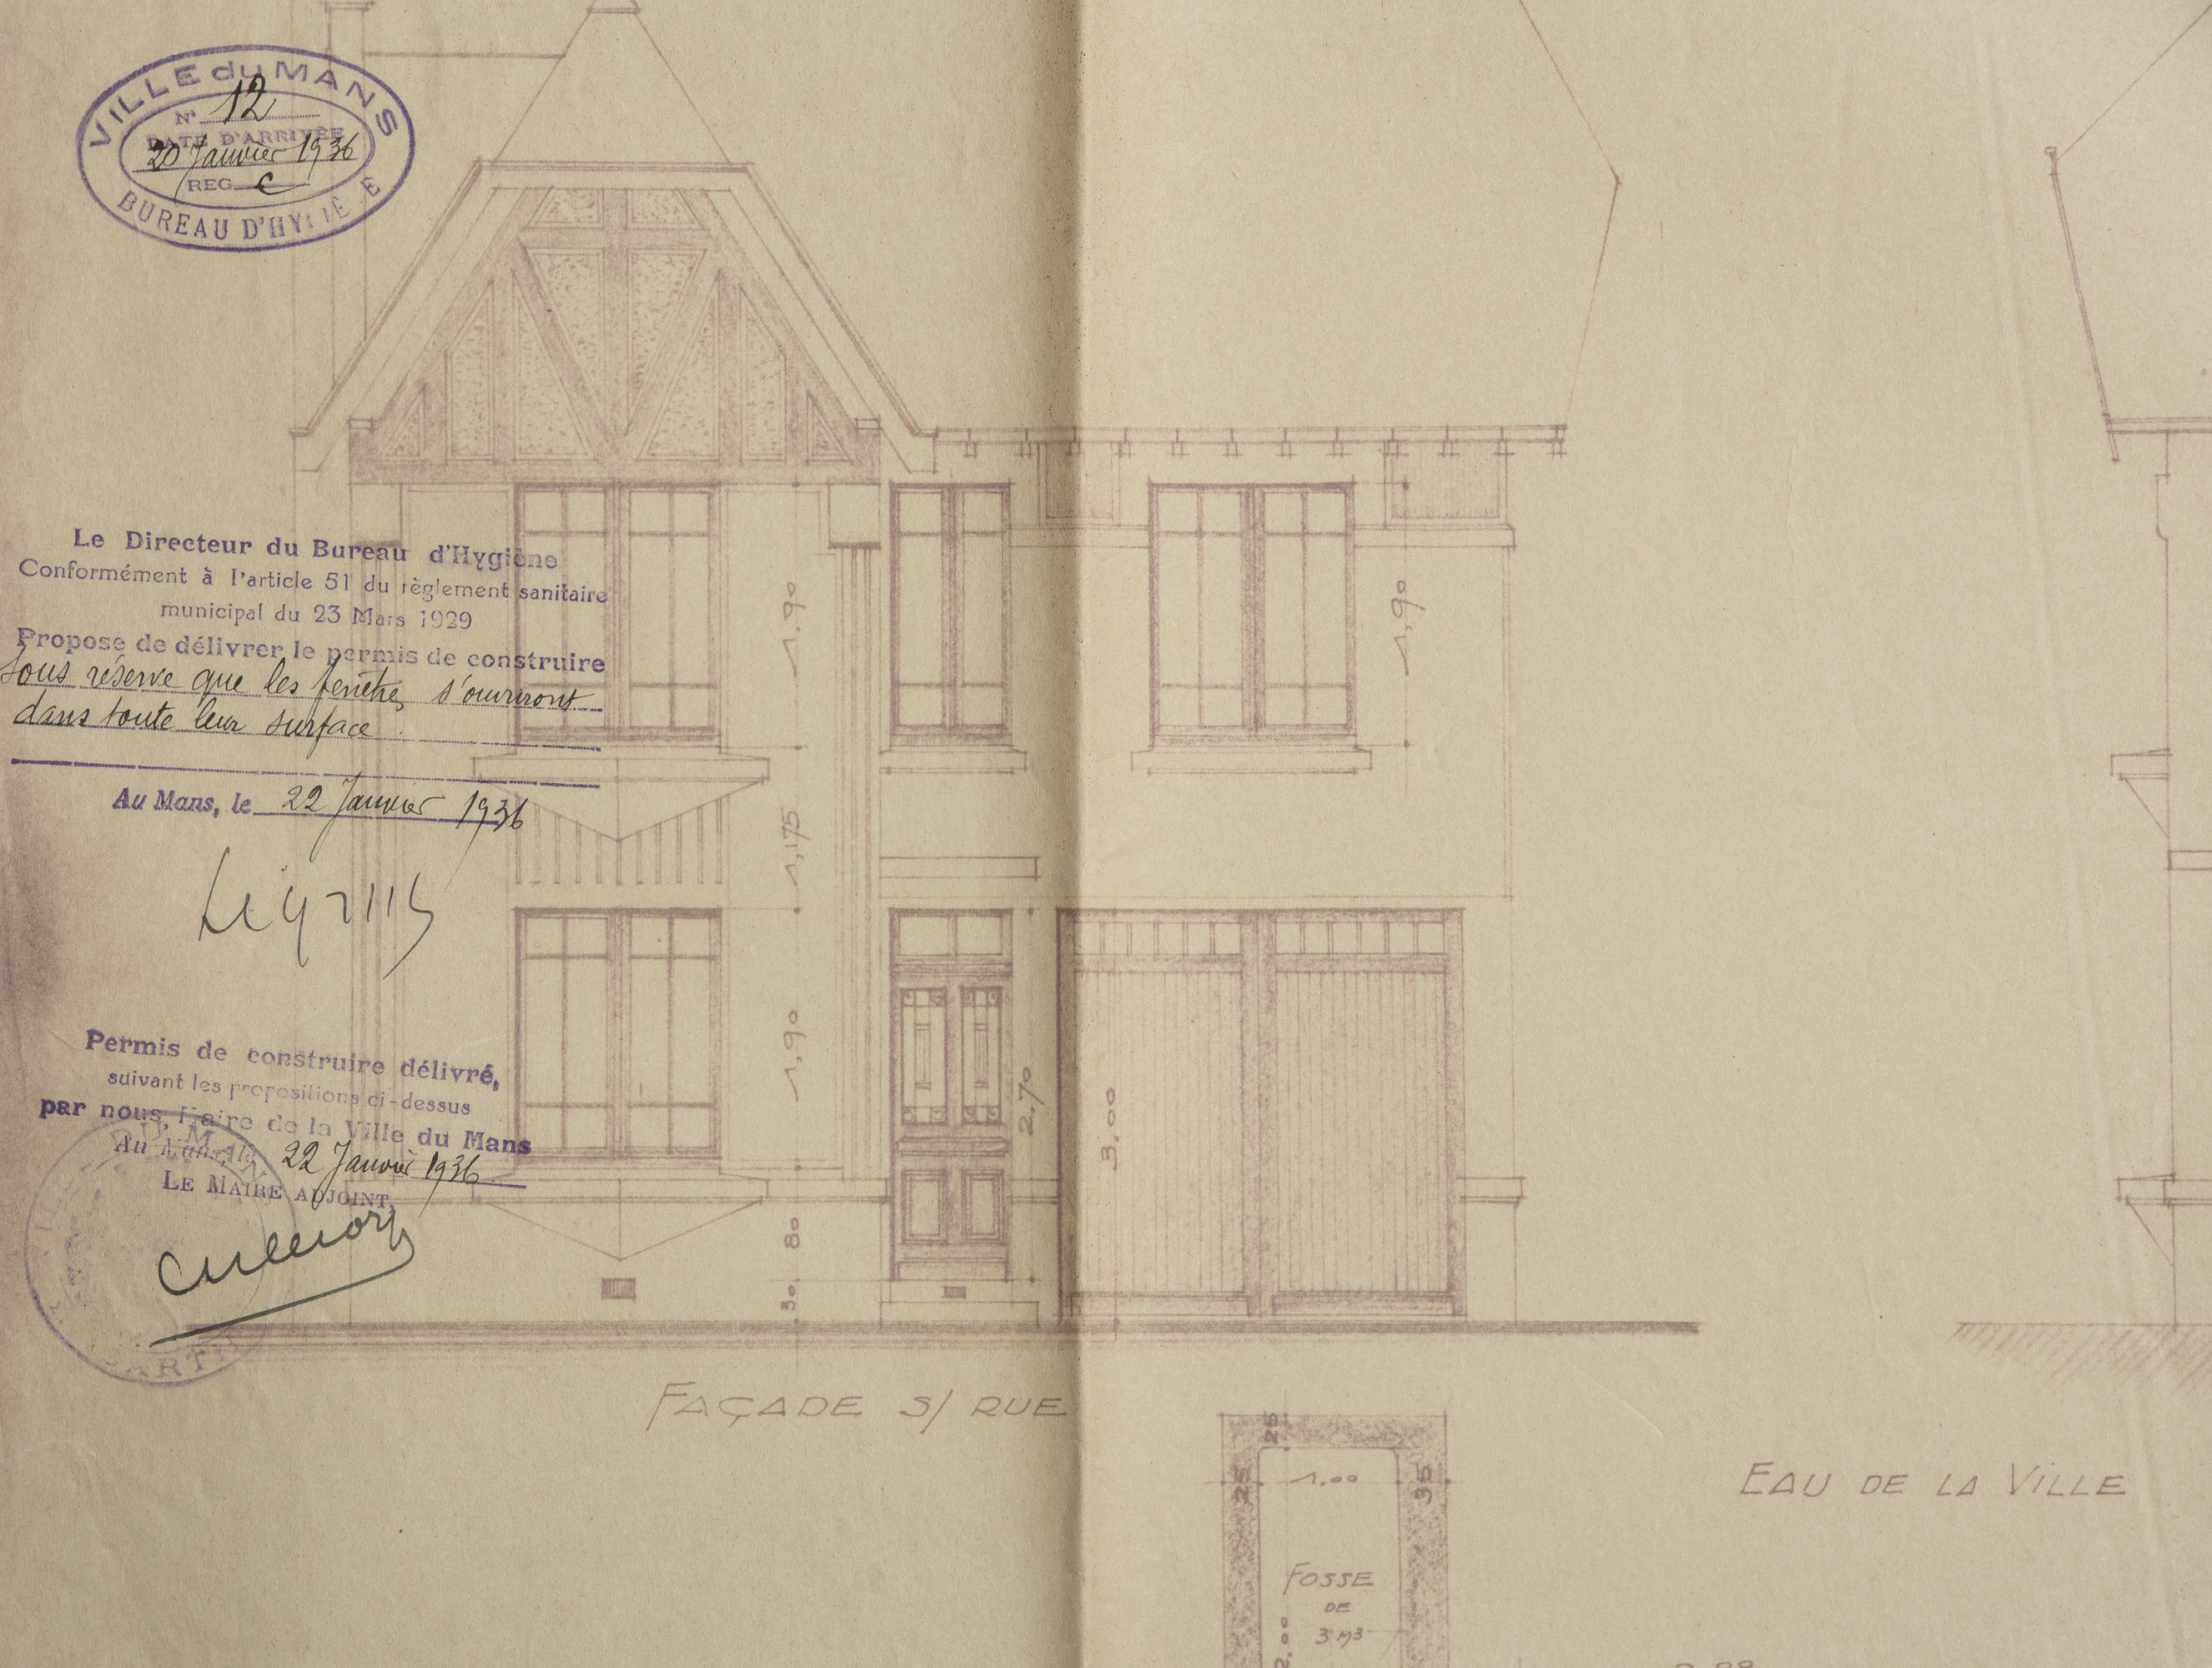 VILLE du MANS
N° 12
DATE D'ARRIVÉE
20 Janvier 1936
REG C
BUREAU D'HYGIÈNE
Le Directeur du Bureau d'Hygiène
Conformément à l'article 51 du règlement sanitaire
municipal du 23 Mars 1929
Propose de délivrer le permis de construire
sous réserve que les fenêtres s'ouvriront
dans toute leur surface.
Au Mans, le 22 Janvier 1936
Permis de construire délivré,
suivant les propositions ci-dessus
par nous, Maire de la Ville du Mans
Au Mans, le 22 Janvier 1936
LE MAIRE ADJOINT,
1.90
1,90
1,175
1.90
2.70
3,00
80
30
FAÇADE S/ RUE
EAU DE LA VILLE
25
25
1.00
35
FOSSE
DE
3 M3
2.00